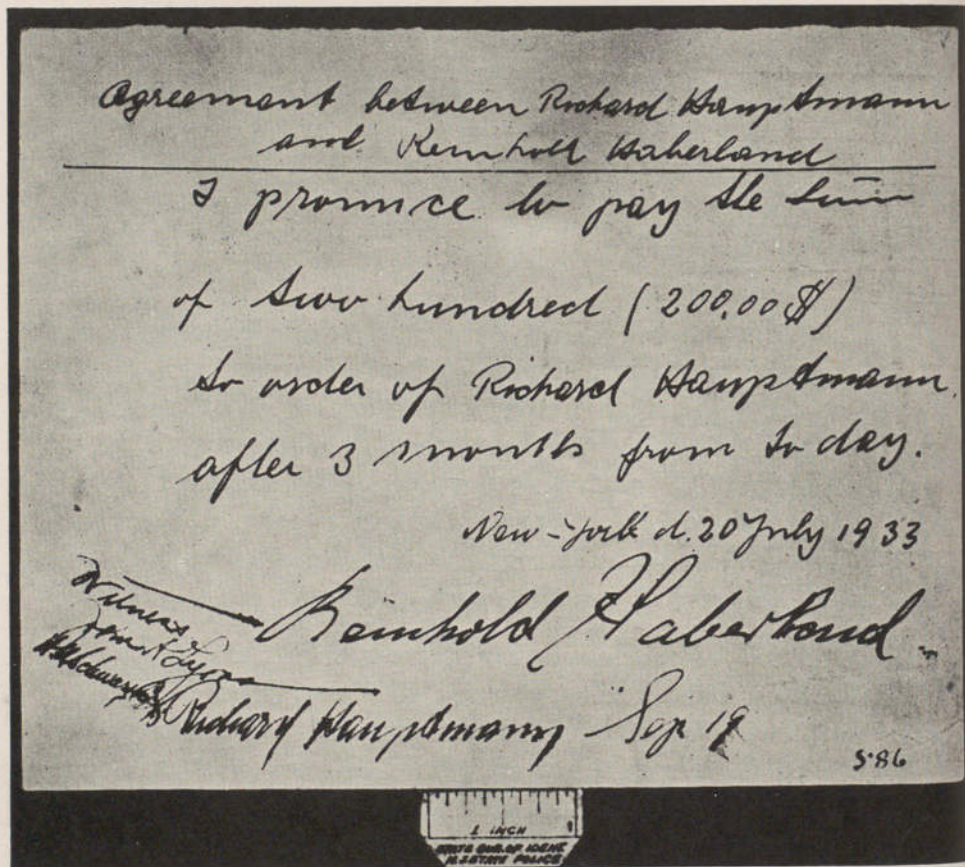 Agreement between Richard Hauptmann
and Reinhold Haberland
I promice to pay the sum
of two hundred (200,00 $)
to order of Richard Hauptmann
after 3 months from to day.
New-York d. 20 July 1933
Reinhold Haberland
Witness
Richard Hauptmann Sep 19
S-86
1 INCH
STATE BUR. OF IDENT.
N.J. STATE POLICE